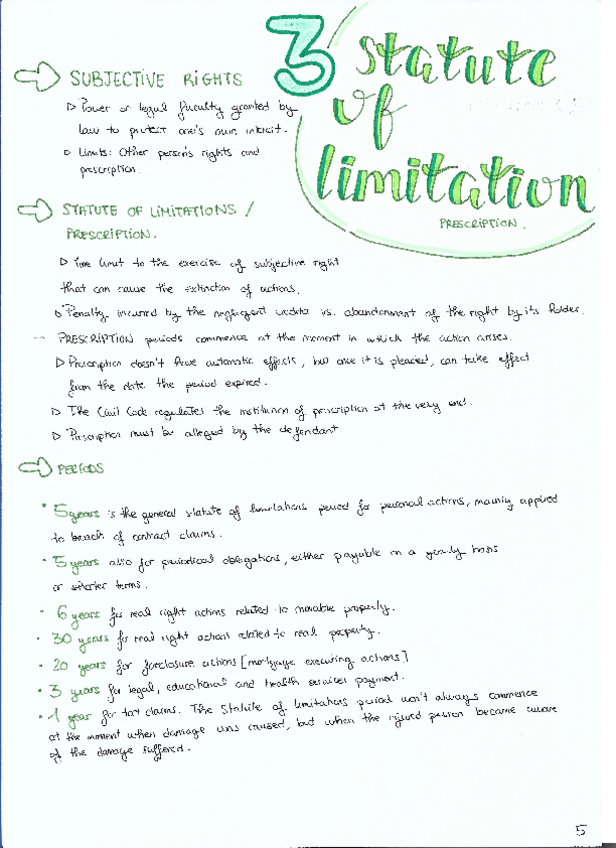 3 statute
of
limitation
PRESCRIPTION.
SUBJECTIVE RIGHTS
Power or legal faculty granted by
law to protect one's own interest.
Limits: Other person's rights and
prescription.
STATUTE OF LIMITATIONS /
PRESCRIPTION.
Time limit to the exercise of subjective right
that can cause the extinction of actions.
Penalty incurred by the negligent creditor vs. abandonment of the right by its holder.
PRESCRIPTION periods commence at the moment in which the action arises.
Prescription doesn't have automatic effects, but once it is pleaded, can take effect
from the date the period expired.
The Civil Code regulates the institution of prescription at the very end.
Prescription must be alleged by the defendant
PERIODS
5 years is the general statute of limitations period for personal actions, mainly applied
to breach of contract claims.
5 years also for periodical obligations, either payable on a yearly basis
or shorter terms.
6 years for real right actions related to movable property.
30 years for real right actions related to real property.
20 years for foreclosure actions [mortgage executing actions]
3 years for legal, educational and health services payment.
1 year for tort claims. The Statute of limitations period won't always commence
at the moment when damage was caused, but when the injured person became aware
of the damage suffered.
5